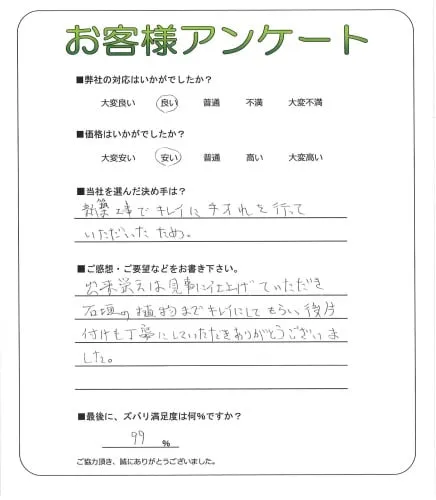 お客様アンケート
■弊社の対応はいかがでしたか?
大変良い 良い 普通 不満 大変不満
■価格はいかがでしたか?
大変安い 安い 普通 高い 大変高い
■当社を選んだ決め手は?
新築工事でキレイに手オれを行って
いただいたため。
■ご感想・ご要望などをお書き下さい。
出来栄えは見事に仕上げていただき
石垣の植物までキレイにしてもらい、後片
付けも丁寧にしていただきありがとうございま
した。
■最後に、ズバリ満足度は何%ですか?
99 %
ご協力頂き、誠にありがとうございました。